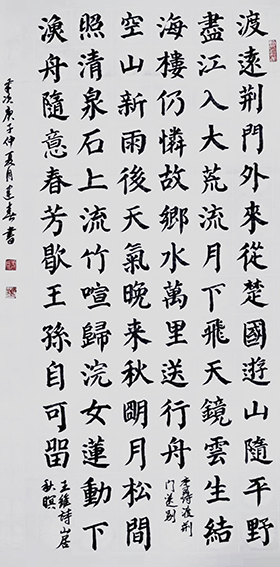 渡遠荆門外來從楚國遊山隨平野
盡江入大荒流月下飛天鏡雲生結
海樓仍憐故鄉水萬里送行舟
李詩渡荆
门送别
空山新雨後天氣晚來秋眀月松間
照清泉石上流竹喧歸浣女蓮動下
漁舟隨意春芳歇王孫自可留
王維詩山居
秋暝
庚子仲夏月建春書